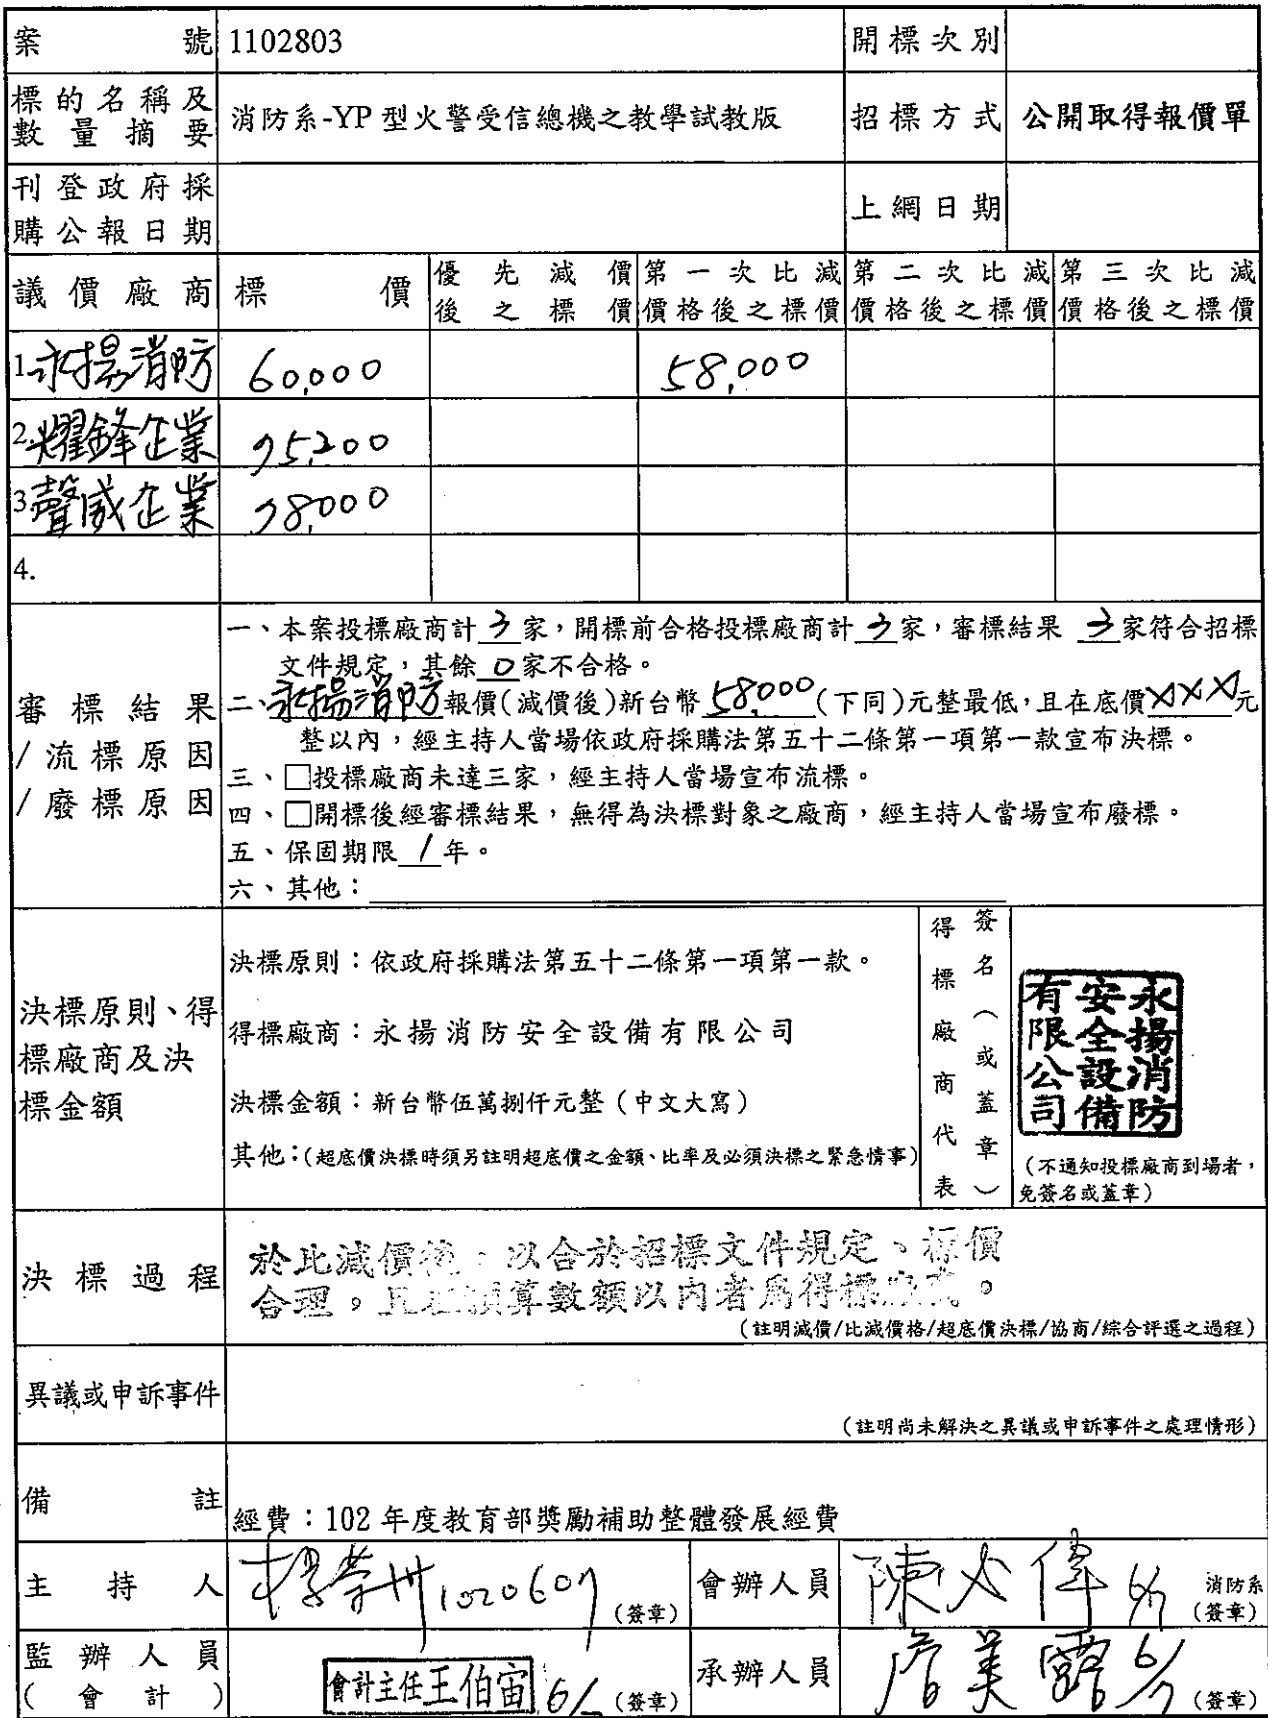 案號 1102803 開標次別
標的名稱及數量摘要 消防系-YP型火警受信總機之教學試教版 招標方式 公開取得報價單
刊登政府採購公報日期 上網日期
議價廠商 標價 優先減價後之標價 第一次比減價格後之標價 第二次比減價格後之標價 第三次比減價格後之標價
1.永揚消防 60,000 58,000
2.耀鋒企業 75,200
3.聲威企業 78,000
4.
審標結果/流標原因/廢標原因
一、本案投標廠商計 3 家，開標前合格投標廠商計 3 家，審標結果 3 家符合招標
文件規定，其餘 0 家不合格。
二、永揚消防報價(減價後)新台幣 58,000 (下同)元整最低，且在底價XXX元
整以內，經主持人當場依政府採購法第五十二條第一項第一款宣布決標。
三、□投標廠商未達三家，經主持人當場宣布流標。
四、□開標後經審標結果，無得為決標對象之廠商，經主持人當場宣布廢標。
五、保固期限 1 年。
六、其他：
決標原則、得標廠商及決標金額
決標原則：依政府採購法第五十二條第一項第一款。
得標廠商：永揚消防安全設備有限公司
決標金額：新台幣伍萬捌仟元整（中文大寫）
其他：(超底價決標時須另註明超底價之金額、比率及必須決標之緊急情事)
得標廠商代表簽名（或蓋章）
永揚消防安全設備有限公司
（不通知投標廠商到場者，
免簽名或蓋章）
決標過程
於比減價後，以合於招標文件規定、標價
合理，且在預算數額以內者為得標廠商。
(註明減價/比減價格/超底價決標/協商/綜合評選之過程)
異議或申訴事件
(註明尚未解決之異議或申訴事件之處理情形)
備註
經費：102 年度教育部獎勵補助整體發展經費
主持人 1020607 (簽章) 會辦人員 陳火偉 6/7 消防系 (簽章)
監辦人員(會計) 會計主任王伯宙 6/ (簽章) 承辦人員 詹美露 6/7 (簽章)